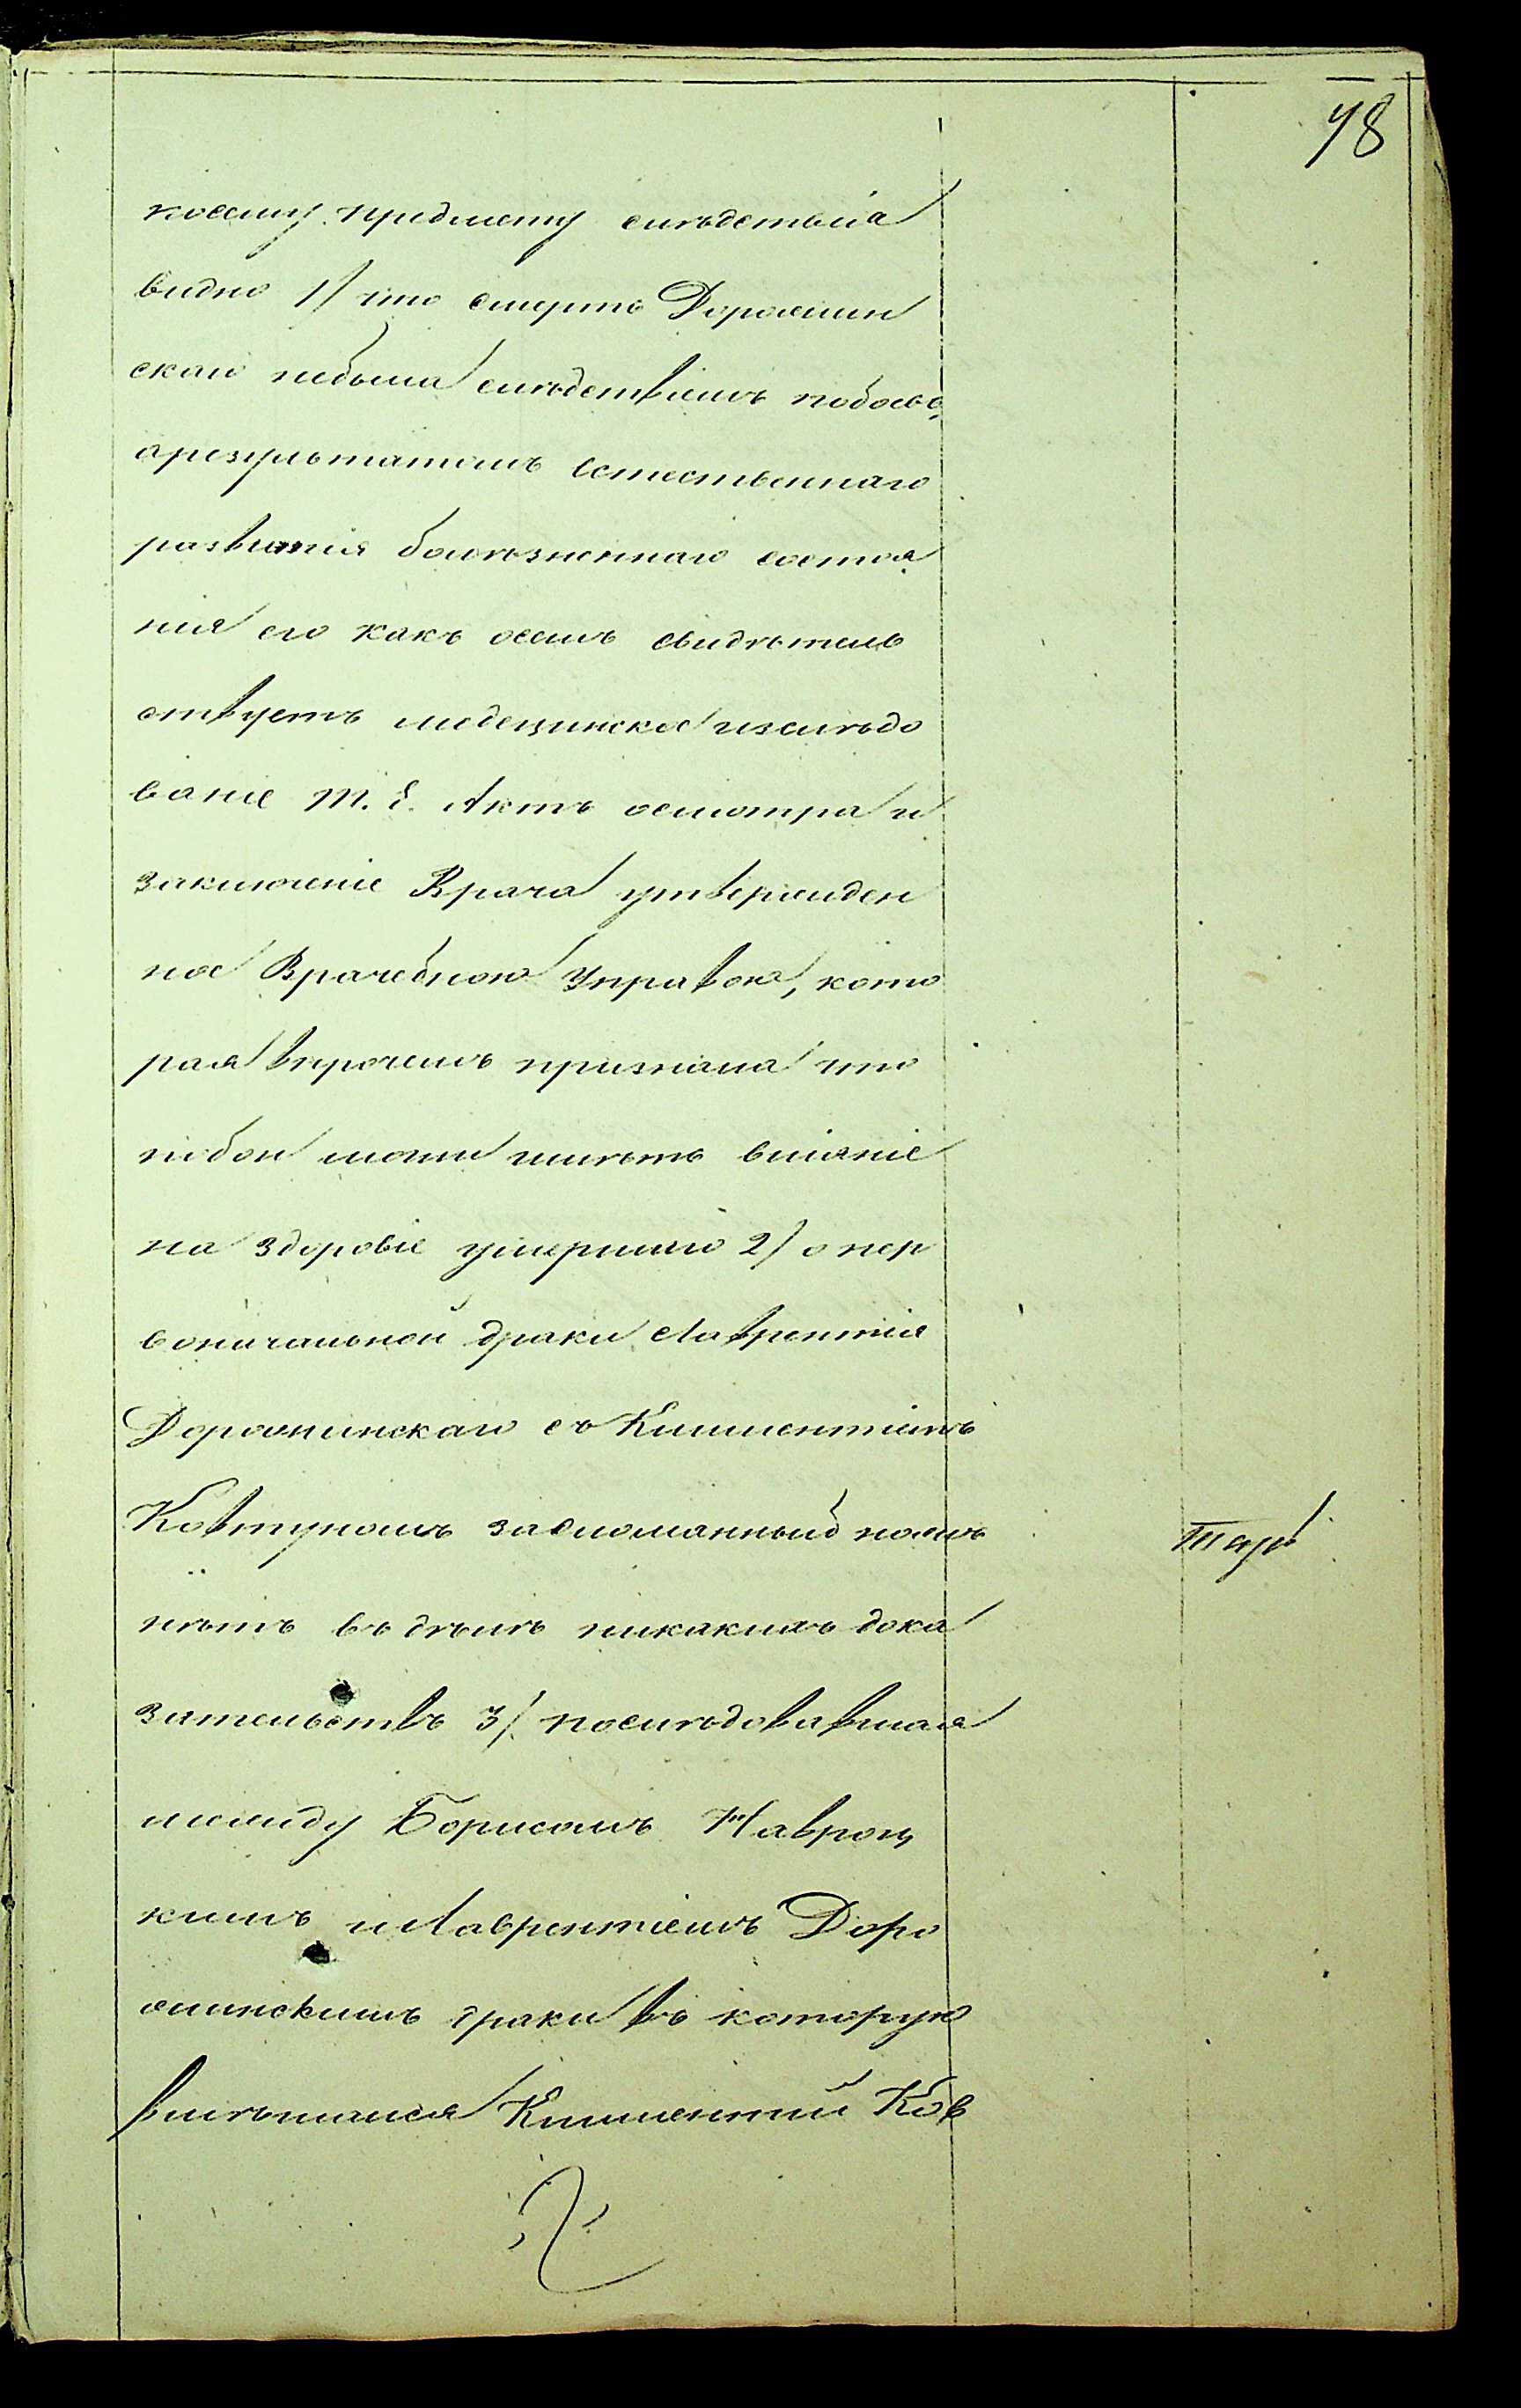 48
косему предмету слѣдствія
видно 1/ что смерть Дорожин
скаго небыла слѣдствіемъ побоевъ,
арезультатомъ естественнаго
развитія болѣзненнаго состоя
нія его какъ осемъ свидѣтель
ствуетъ медецинское изслѣдо
ваніе т. е. Актъ осмотра и
заключеніе Врача утвержден
ное Врачебною Управою, кото
рая впрочемъ признала что
побои могли имѣть вліяніе
на здоровіе умершаго 2/ о пер
воначальной драки Лаврентія
Дорожинскаго съ Климентіемъ
Ковтуномъ засломанный ножъ
нѣтъ въ дѣлѣ никакихъ дока
зательствъ 3/ послѣдовавшая
между Борисомъ Навроц
кимъ иЛаврентіемъ Доро
жинскимъ драки въ которую
вмѣшался Климентий Ков